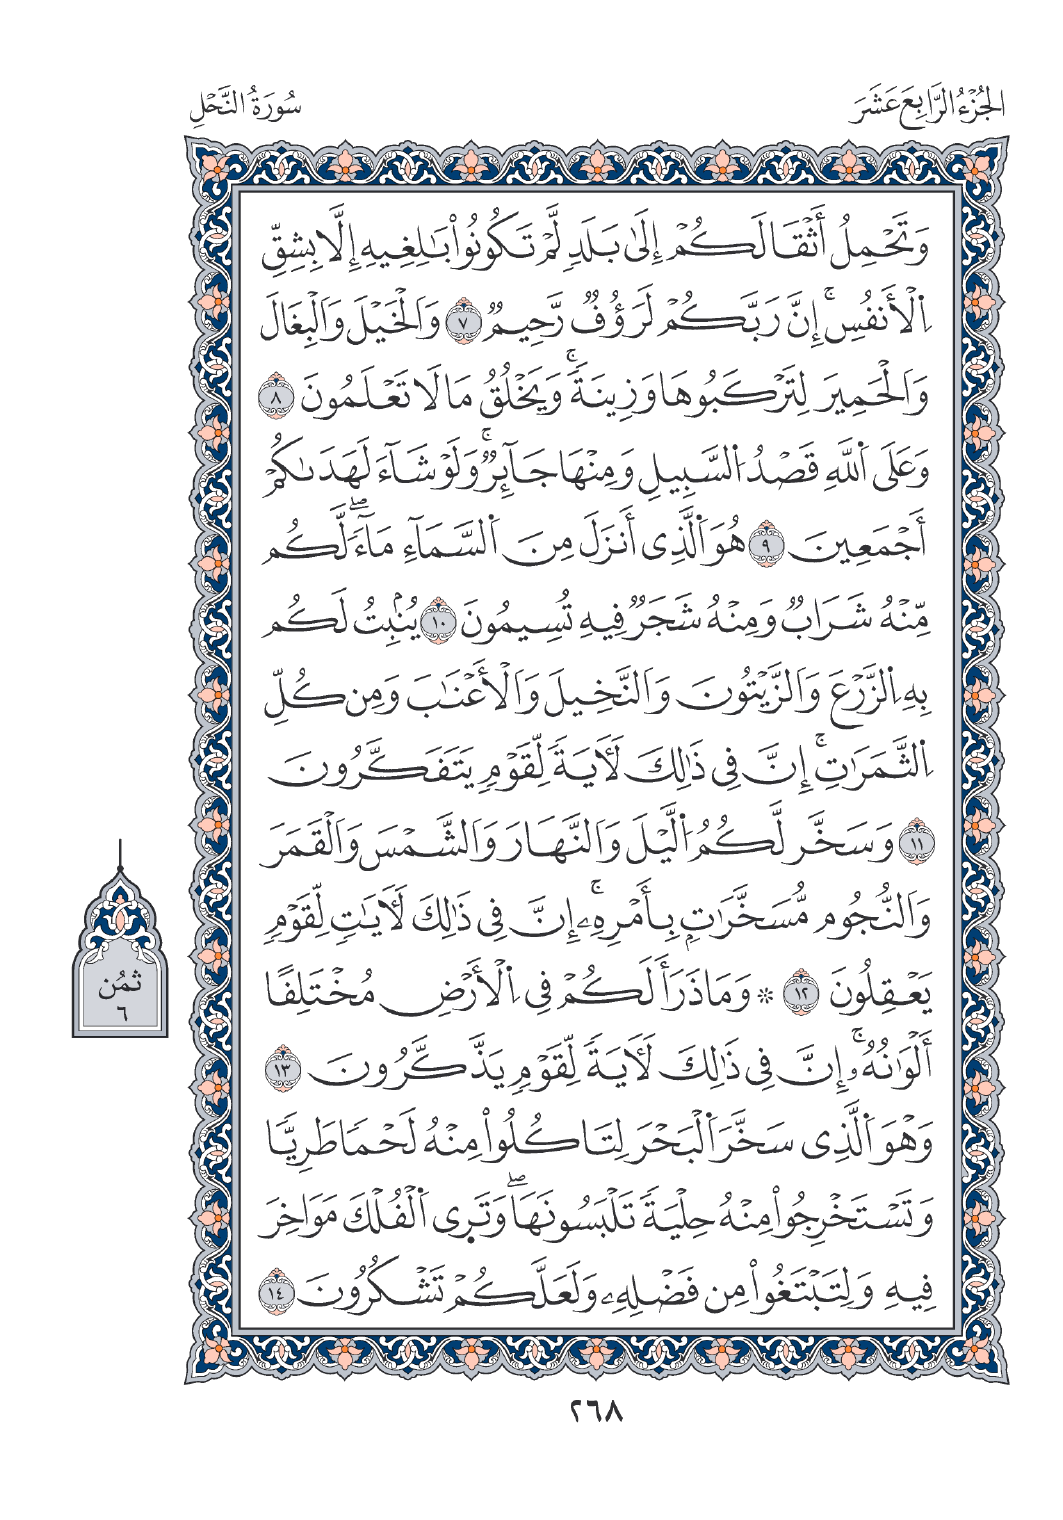 الجُزْءُ الرَّابِعَ عَشَرَ
سُورَةُ النَّحْلِ
وَتَحْمِلُ أَثْقَالَكُمْ إِلَىٰ بَلَدٍ لَّمْ تَكُونُوا۟ بَٰلِغِيهِ إِلَّا بِشِقِّ
اِ۬لْأَنفُسِۚ إِنَّ رَبَّكُمْ لَرَؤُفٌ رَّحِيمٌ ٧ وَالْخَيْلَ وَالْبِغَالَ
وَالْحَمِيرَ لِتَرْكَبُوهَا وَزِينَةًۚ وَيَخْلُقُ مَا لَا تَعْلَمُونَ ٨
وَعَلَى اَ۬للَّهِ قَصْدُ اُ۬لسَّبِيلِ وَمِنْهَا جَآئِرٌۚ وَلَوْ شَآءَ لَهَدَىٰكُمْ
أَجْمَعِينَ ٩ هُوَ اَ۬لَّذِى أَنزَلَ مِنَ اَ۬لسَّمَآءِ مَآءًۖ لَّكُم
مِّنْهُ شَرَابٌ وَمِنْهُ شَجَرٌ فِيهِ تُسِيمُونَ ١٠ يُنۢبِتُ لَكُم
بِهِ اِ۬لزَّرْعَ وَالزَّيْتُونَ وَالنَّخِيلَ وَالْأَعْنَٰبَ وَمِن كُلِّ
اِ۬لثَّمَرَٰتِۚ إِنَّ فِى ذَٰلِكَ لَأٓيَةً لِّقَوْمٍ يَتَفَكَّرُونَ
١١ وَسَخَّر لَّكُمُ اُ۬لَّيْلَ وَالنَّهَارَ وَالشَّمْسَ وَالْقَمَرَ
وَالنُّجُوم مُّسَخَّرَٰتِۭ بِأَمْرِهِۦۚ إِنَّ فِى ذَٰلِكَ لَأٓيَٰتٍ لِّقَوْمٍ
يَعْقِلُونَ ١٢ ۞ وَمَا ذَرَأَ لَكُمْ فِى اِ۬لْأَرْضِ مُخْتَلِفًا
أَلْوَانُهُۥۚ إِنَّ فِى ذَٰلِكَ لَأٓيَةً لِّقَوْمٍ يَذَّكَّرُونَ ١٣
وَهْوَ اَ۬لَّذِى سَخَّرَ اَ۬لْبَحْرَ لِتَاكُلُوا۟ مِنْهُ لَحْمًا طَرِيًّا
وَتَسْتَخْرِجُوا۟ مِنْهُ حِلْيَةً تَلْبَسُونَهَاۖ وَتَرَى اَ۬لْفُلْكَ مَوَاخِرَ
فِيهِ وَلِتَبْتَغُوا۟ مِن فَضْلِهِۦ وَلَعَلَّكُمْ تَشْكُرُونَ ١٤
ثُمُن
٦
٢٦٨